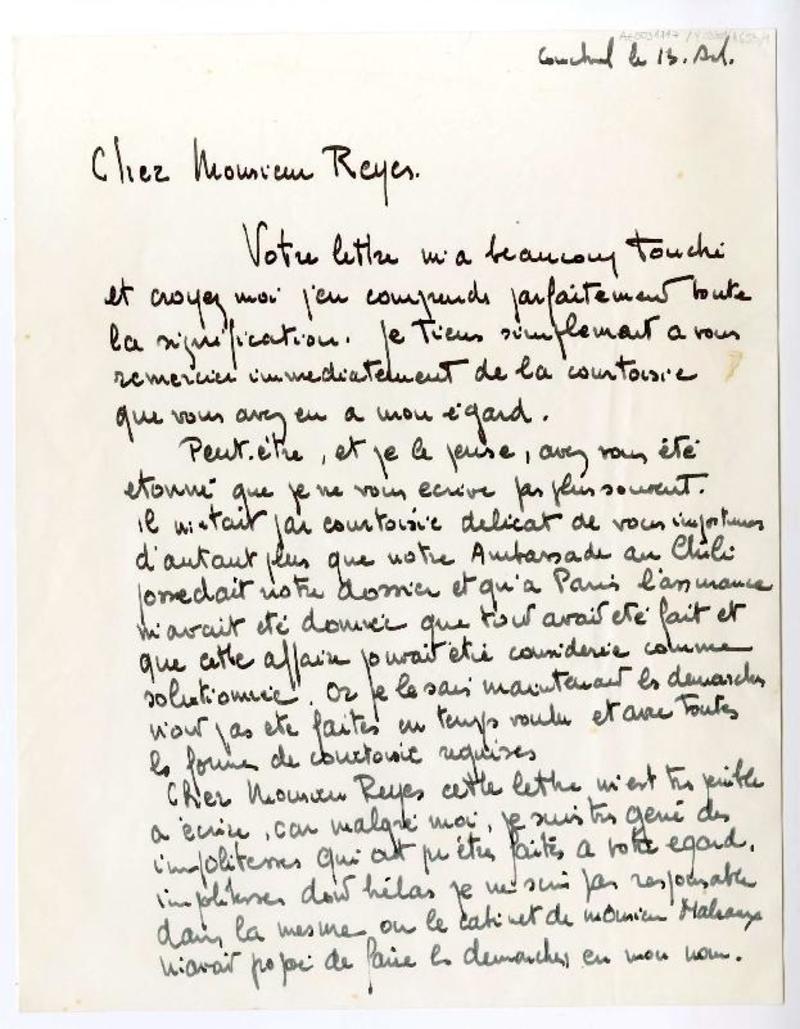 le 13.
Cher Monsieur Reyes.
Votre lettre m'a beaucoup touché
et croyez moi j'en comprends parfaitement toute
la signification. Je tiens simplement a vous
remercier immediatement de la courtoisie
que vous avez eu a mon égard.
Peut-être, et je le pense, avez vous été
etonné que je ne vous ecrive pas plus souvent.
il m'etait par courtoisie delicat de vous importuner
d'autant plus que notre Ambassade au Chili
possedait notre dossier et qu'a Paris l'assurance
m'avait été donnée que tout avait été fait et
que cette affaire pouvait être considerée comme
solutionnée. Or je le sais maintenant les demarches
n'ont pas eté faites en temps voulu et avec toutes
les formes de courtoisie requises
Cher Monsieur Reyes cette lettre m'est tres penible
a écrire, car malgré moi, je suis tres gené des
impolitesses qui ont pu êtres faites a votre egard,
impolitesses dont hélas je ne suis pas responsable
dans la mesure ou le cabinet de monsieur Malraux
m'avait de faire les demarches en mon nom.